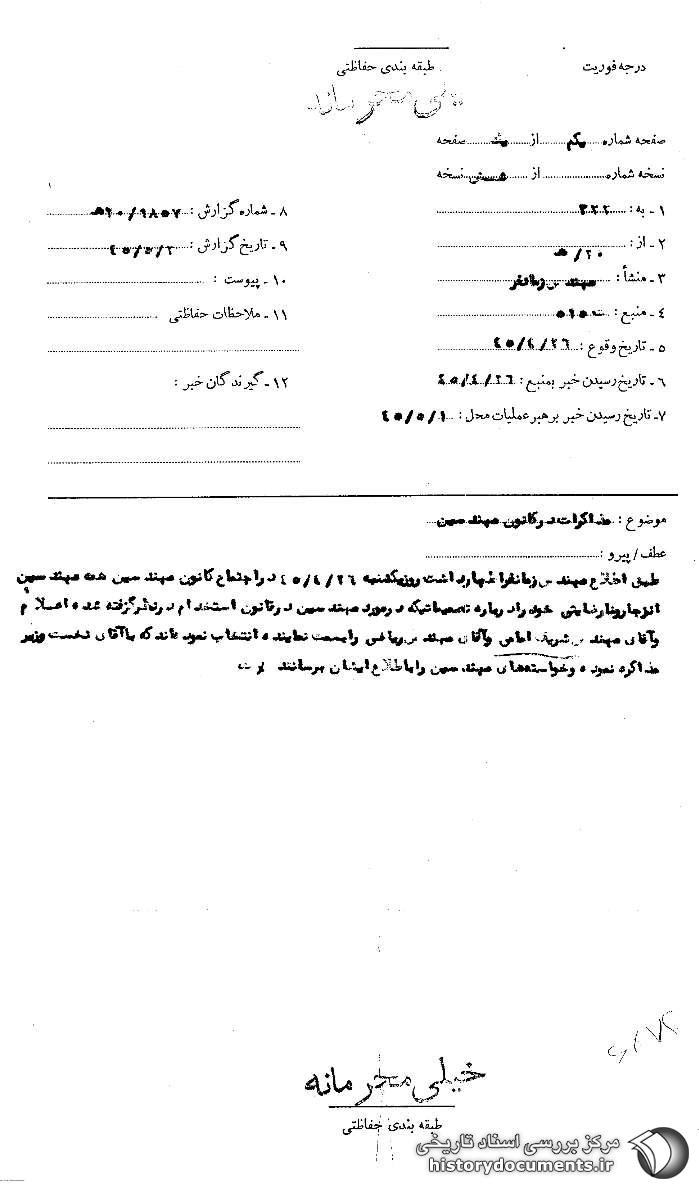 درجه فوریت
طبقه بندی حفاظتی
خیلی محرمانه
صفحه شماره یکم از یک صفحه
نسخه شماره از شش نسخه
۱ـ به : ۳۲۲
۲ـ از : ۲۰/ه
۳ـ منشأ : مهندس زمانفر
۴ـ منبع :
۵ـ تاریخ وقوع : ۴۵/۴/۲۶
۶ـ تاریخ رسیدن خبر بمنبع : ۴۵/۴/۲۶
۷ـ تاریخ رسیدن خبر برهبر عملیات محل : ۴۵/۵/۱
۸ـ شماره گزارش : ۹۸۵۷/۲۰ه
۹ـ تاریخ گزارش : ۴۵/۵/۲
۱۰ـ پیوست :
۱۱ـ ملاحظات حفاظتی
۱۲ـ گیرندگان خبر :
موضوع : مذاکرات در کانون مهندسین
عطف/پیرو :
طبق اطلاع مهندس زمانفر اظهار داشت روز یکشنبه ۴۵/۴/۲۶ در اجتماع کانون مهندسین همه مهندسین
انزجار و نارضایتی خود را درباره تصمیماتیکه در مورد مهندسین در قانون استخدام در نظر گرفته شده اعلام
و آقای مهندس شریف امامی و آقای مهندس ریاضی را بسمت نماینده انتخاب نموده‌اند که با آقای نخست وزیر
مذاکره نموده و خواسته‌های مهندسین را باطلاع ایشان برسانند
خیلی محرمانه
طبقه بندی حفاظتی
مرکز بررسی اسناد تاریخی
historydocuments.ir